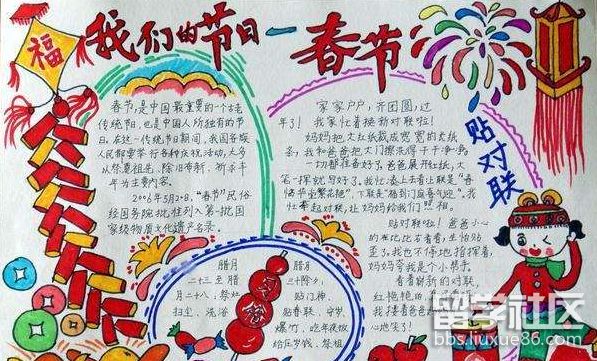 福
我们的节日—春节
春节,是中国最重要的一个古老
传统节,也是中国人所独有的节
日。在这一传统节日期间,我国各族
人民都要举行各种庆祝活动,大多
以祭奠祖先、除旧布新、祈求丰
年为主要内容。
2006年5月20日,“春节”民俗
经国务院批准列入第一批国
家级物质文化遗产名录。
家家户户,齐团圆,过
年了!我家忙着换新对联啦!
妈妈把大红纸裁成宽宽的大纸
条,我和爸爸把大门擦洗得干干净净
一切都准备好了。爸爸展开红纸,大
笔一挥就写好了。我忙凑上去看
下联是“福到门庭喜气迎”。我
忙举起对联,让妈妈给我们照相。
贴对联
贴对联啦!爸爸小心
的在比比右看看,生怕贴
歪了。我也不停地指挥着,
妈妈夸我是个小帮手。
看着崭新的对联,
红艳艳的
我搂着爸爸
心地笑了!
腊月
二十三至腊
月二十八,祭灶
扫尘,洗浴
腊月
三十除夕
贴门神,
贴春联,守岁,
爆竹,吃年夜饭
给压岁钱,祭祖
留学社区
bbs.liuxue86.com